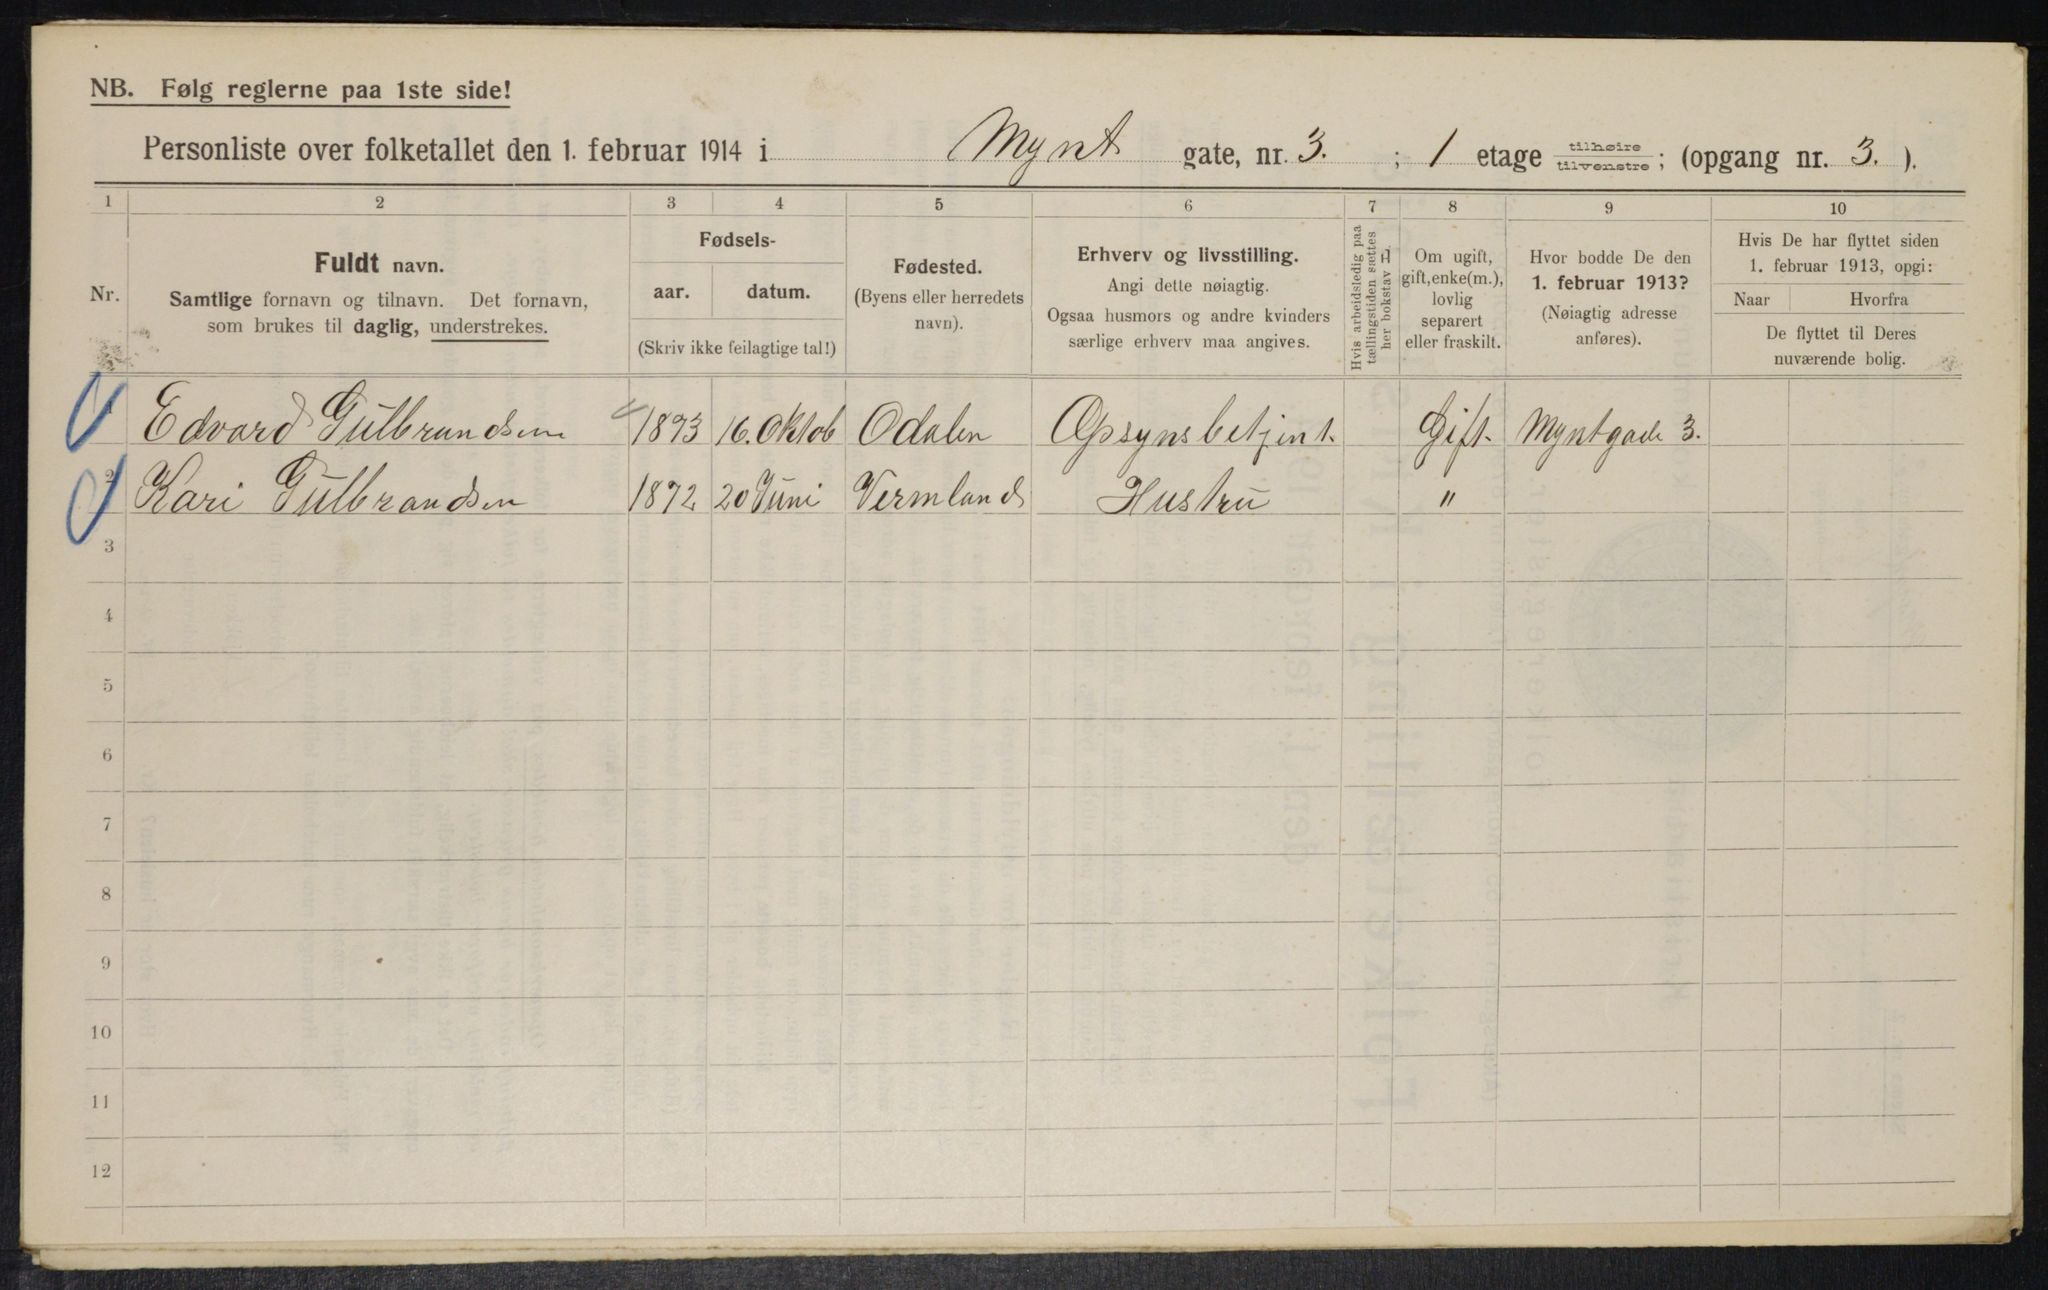 NB. Følg reglerne paa 1ste side!
Personliste over folketallet den 1. februar 1914 i Mynt gate, nr. 3. ; 1 etage tilhøire tilvenstre ; (opgang nr. 3. ).
1 2 3 4 5 6 7 8 9 10
Nr.
Fuldt navn.
Samtlige fornavn og tilnavn. Det fornavn,
som brukes til daglig, understrekes.
Fødsels-
aar. datum.
(Skriv ikke feilagtige tal!)
Fødested.
(Byens eller herredets
navn).
Erhverv og livsstilling.
Angi dette nøiagtig.
Ogsaa husmors og andre kvinders
særlige erhverv maa angives.
Hvis arbeidsledig paa
tællingstiden sættes
her bokstav L
Om ugift,
gift, enke(m.),
lovlig
separert
eller fraskilt.
Hvor bodde De den
1. februar 1913?
(Nøiagtig adresse
anføres).
Hvis De har flyttet siden
1. februar 1913, opgi:
Naar Hvorfra
De flyttet til Deres
nuværende bolig.
Edvard Gulbrandsen 1873 16. Oktob Odalen Opsynsbetjent. Gift. Myntgade 3.
2 Kari Gulbrandsen 1872 20 Juni Vermlands Hustru "
3
4
5
6
7
8
9
10
11
12